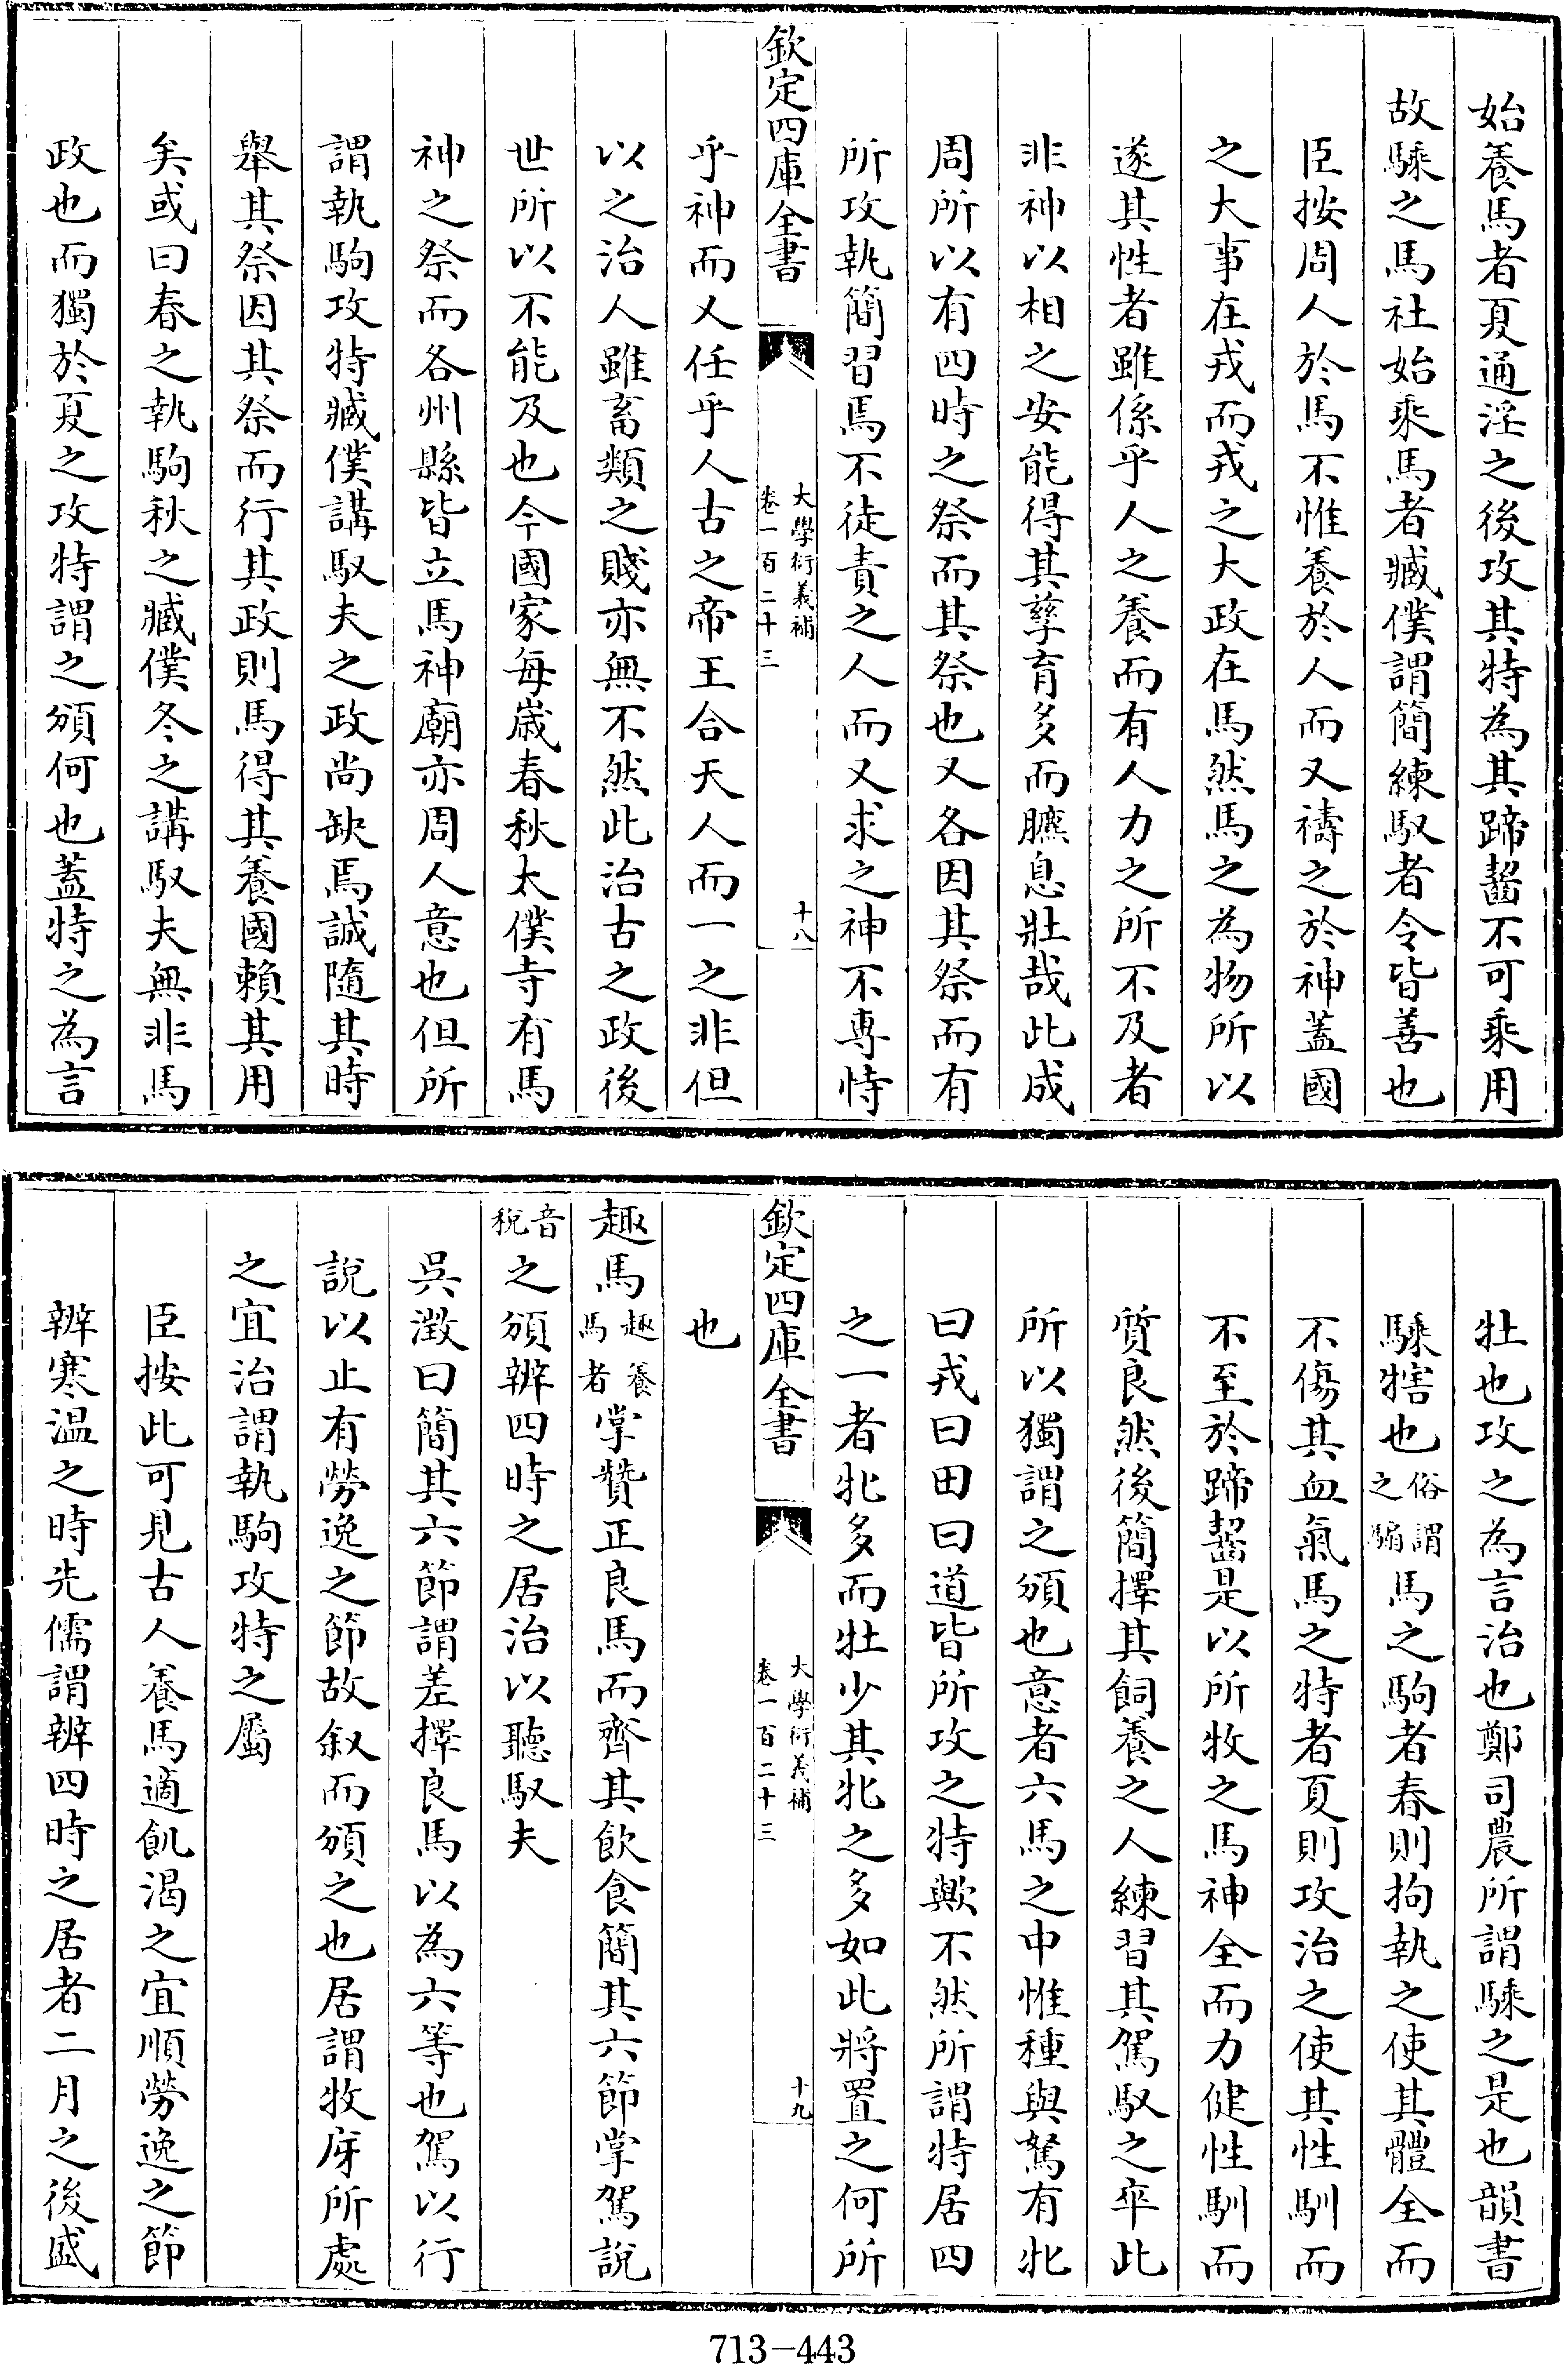 始養馬者夏通淫之後攻其特為其蹄齧不可乘用
故騬之馬社始乘馬者臧僕謂簡練馭者令皆善也
臣按周人於馬不惟養於人而又禱之於神蓋國
之大事在戎而戎之大政在馬然馬之為物所以
遂其性者雖係乎人之養而有人力之所不及者
非神以相之安能得其孳育多而臕息壯哉此成
周所以有四時之祭而其祭也又各因其祭而有
所攻執簡習焉不徒責之人而又求之神不專恃
欽定四庫全書
大學衍義補
卷一百二十三
十八
乎神而又任乎人古之帝王合天人而一之非但
以之治人雖畜類之賤亦無不然此治古之政後
世所以不能及也今國家每歲春秋太僕寺有馬
神之祭而各州縣皆立馬神廟亦周人意也但所
謂執駒攻特臧僕講馭夫之政尚缺焉誠隨其時
舉其祭因其祭而行其政則馬得其養國賴其用
矣或曰春之執駒秋之臧僕冬之講馭夫無非馬
政也而獨於夏之攻特謂之頒何也蓋特之為言
牡也攻之為言治也鄭司農所謂騬之是也韻書
騬犗也俗謂之騸馬之駒者春則拘執之使其體全而
不傷其血氣馬之特者夏則攻治之使其性馴而
不至於蹄齧是以所牧之馬神全而力健性馴而
質良然後簡擇其飼養之人練習其駕馭之卒此
所以獨謂之頒也意者六馬之中惟種與駑有牝
曰戎曰田曰道皆所攻之特歟不然所謂特居四
之一者牝多而牡少其牝之多如此將置之何所
欽定四庫全書
大學衍義補
卷一百二十三
十九
也
趣馬趣養馬者掌贊正良馬而齊其飲食簡其六節掌駕說
音稅之頒辨四時之居治以聽馭夫
吳澂曰簡其六節謂差擇良馬以為六等也駕以行
說以止有勞逸之節故叙而頒之也居謂牧庌所處
之宜治謂執駒攻特之屬
臣按此可見古人養馬適飢渴之宜順勞逸之節
辨寒温之時先儒謂辨四時之居者二月之後盛
713-443